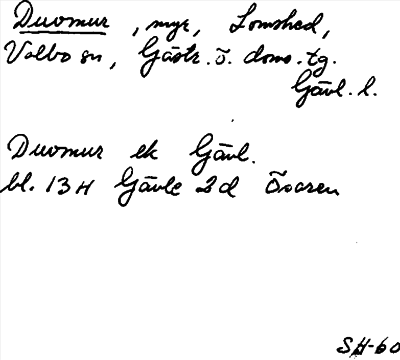 Duvmur, myr, Lomshed,
Valbo sn, Gästr. ö. doms. tg.
Gävl. l.
Duvmur ek Gävl.
bl. 13 H Gävle 2d Ösaren
SH-60